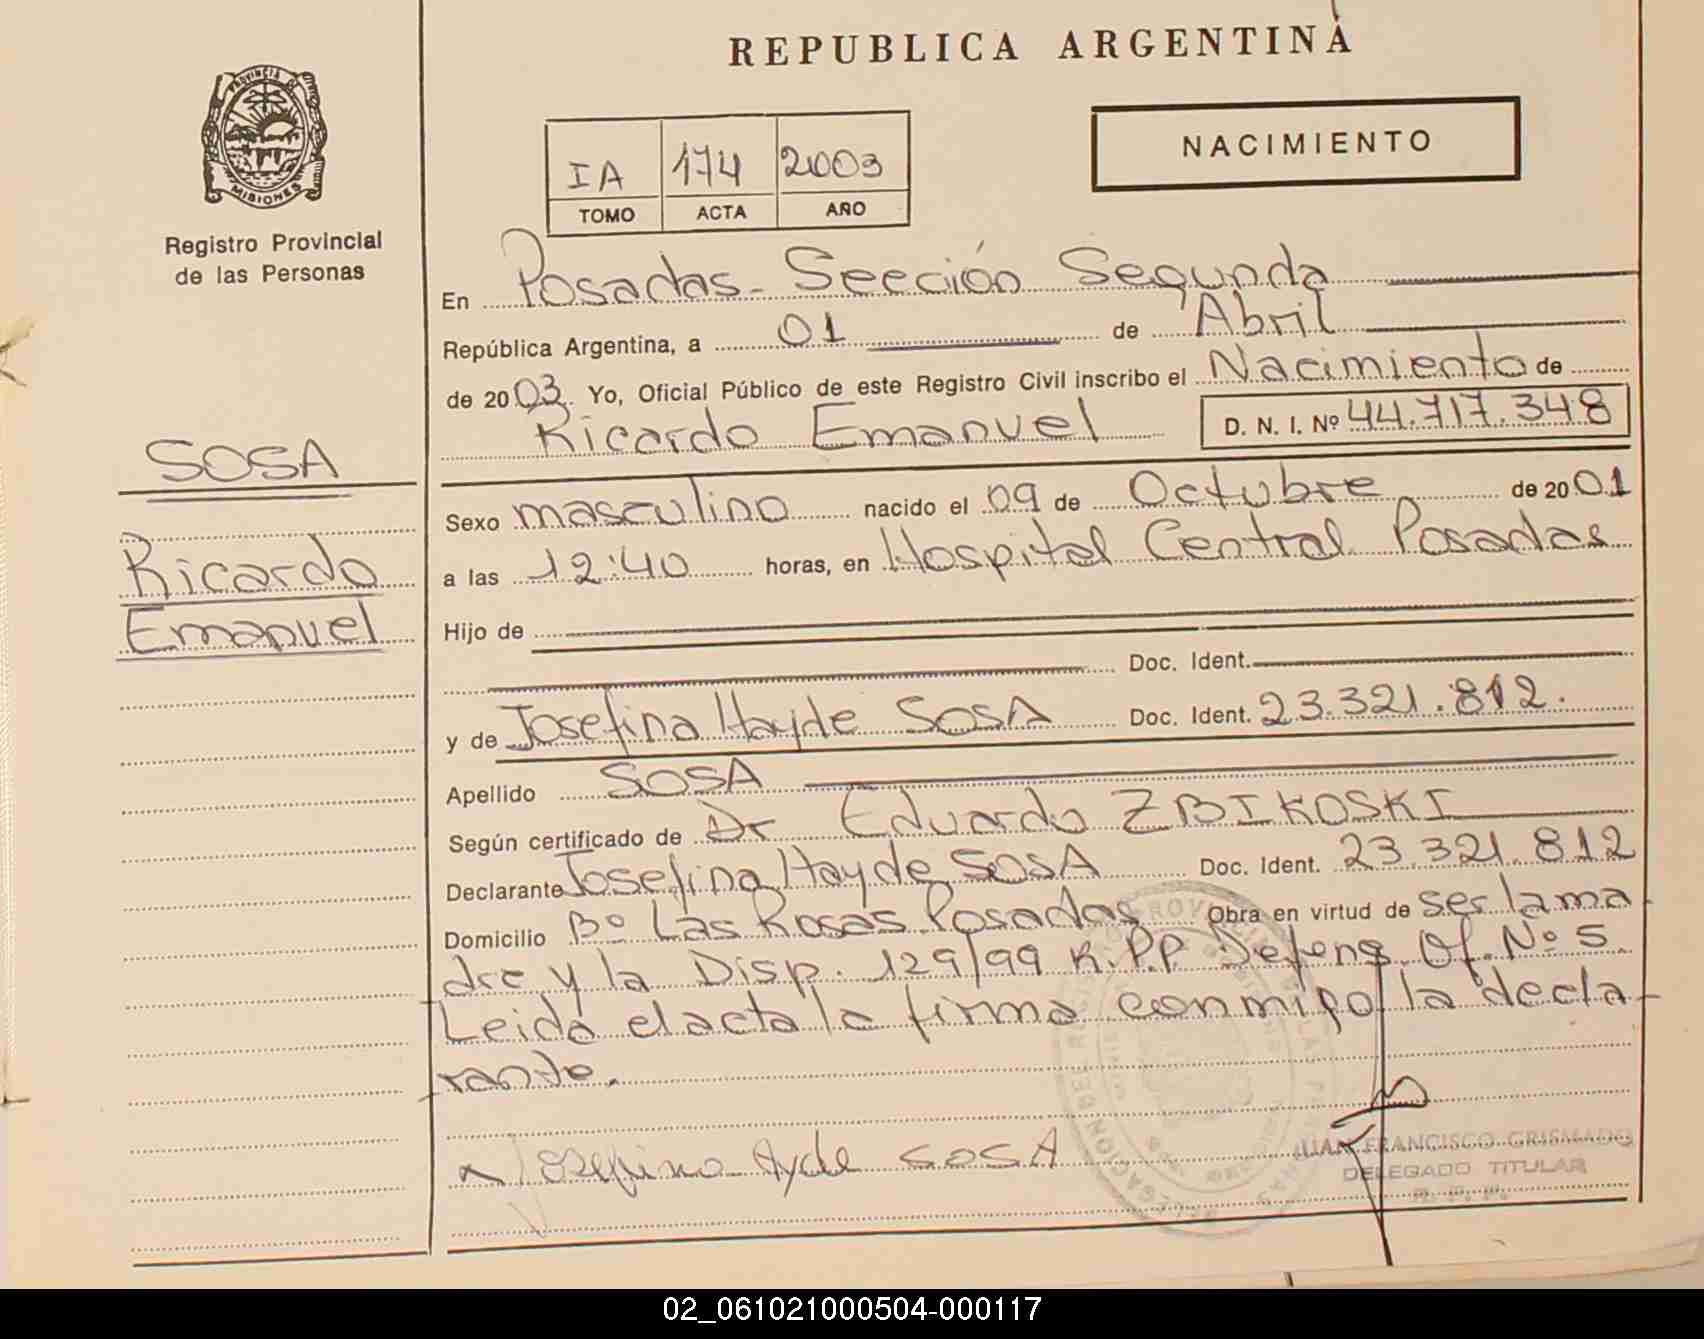 REPUBLICA ARGENTINA
PROVINCIA DE
MISIONES
Registro Provincial
de las Personas
IA 174 2003
TOMO ACTA AÑO
NACIMIENTO
En Posadas - Sección Segunda
República Argentina, a 01 de Abril
de 2003. Yo, Oficial Público de este Registro Civil inscribo el Nacimiento de
Ricardo Emanuel D. N. I. Nº 44.717.348
SOSA
Ricardo
Emanuel
Sexo masculino nacido el 09 de Octubre de 2001
a las 12:40 horas, en Hospital Central Posadas
Hijo de
Doc. Ident.
y de Josefina Hayde SOSA Doc. Ident. 23.321.812.
Apellido SOSA
Según certificado de Dr Eduardo ZBIKOSKI
Declarante Josefina Hayde SOSA Doc. Ident. 23.321.812
Domicilio Bº Las Rosas Posadas Obra en virtud de ser la ma
dre y la Disp. 129/99 R.P.P Defens. Of. Nº 5
Leida el acta la firma conmigo la decla-
rante.
Josefina Ayde SOSA
JUAN FRANCISCO GRISMADO
DELEGADO TITULAR
R. P. P.
02_061021000504-000117